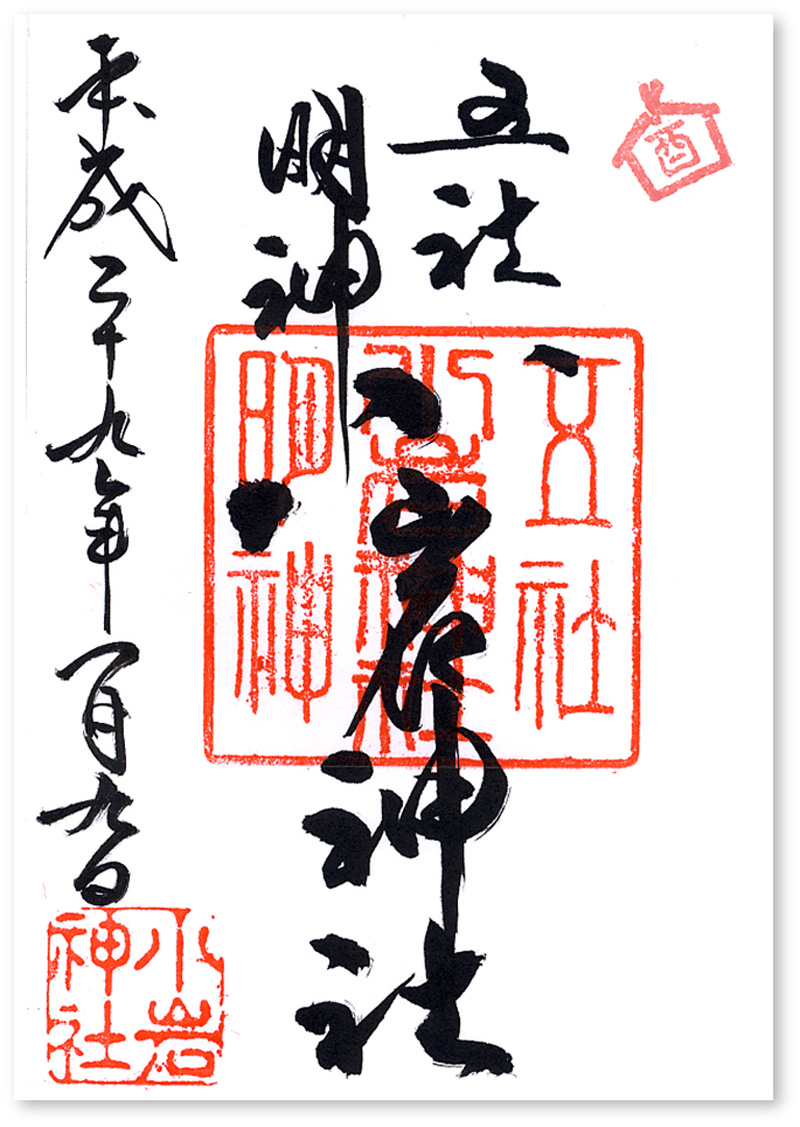 酉
五社
明神
小岩神社
五社
小岩神社
明神
平成二十九年一月九日
小岩
神社